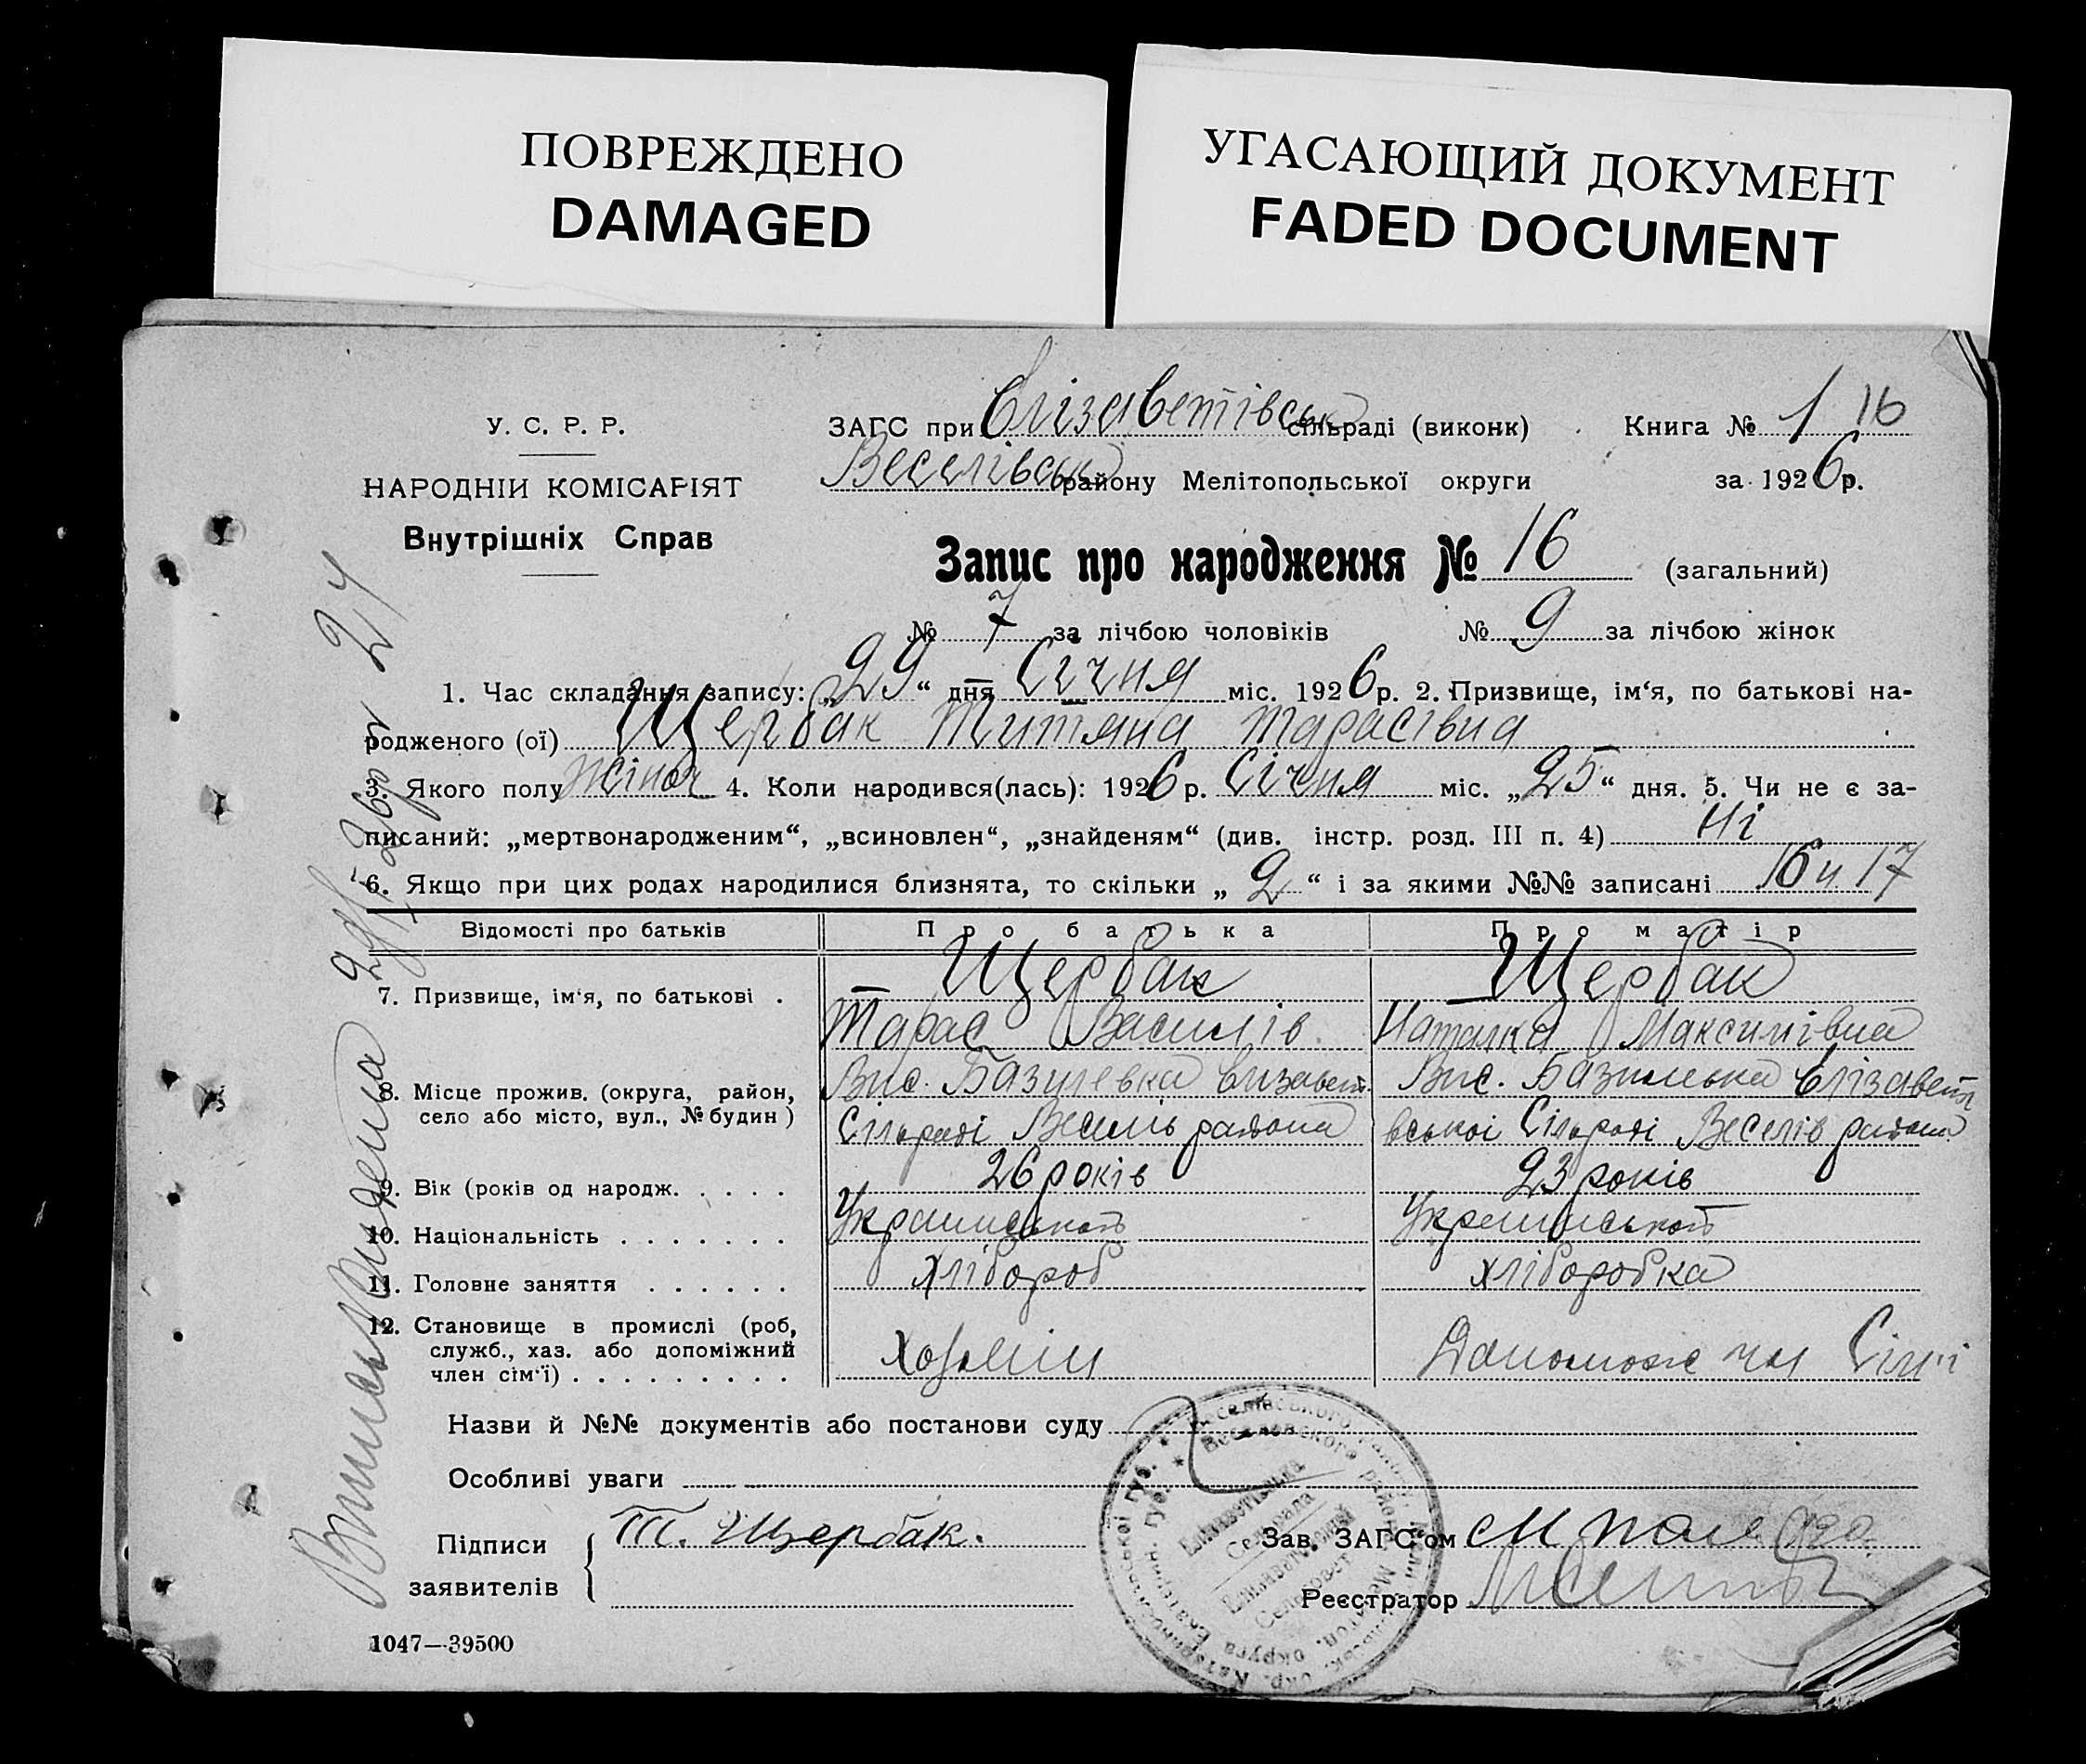 ПОВРЕЖДЕНО
DAMAGED
УГАСАЮЩИЙ ДОКУМЕНТ
FADED DOCUMENT
У. С. Р. Р.
НАРОДНІЙ КОМІСАРІЯТ
Внутрішніх Справ
ЗАГС при Єлізаветівськ сільраді (виконк)
Веселівськ району Мелітопольської округи
Книга № 1 16
за 1926 р.
Запис про народження № 16 (загальний)
№ 7 за лічбою чоловіків № 9 за лічбою жінок
1. Час складання запису: „29“ дня Січня міс. 1926 р. 2. Призвище, ім‘я, по батькові на-
родженого (ої) Щербак Титяна Тарасівна
3. Якого полу жіноч 4. Коли народився(лась): 1926 р. Січня міс. „25“ дня. 5. Чи не є за-
писаний: „мертвонародженим“, „всиновлен“, „знайденям“ (див. інстр. розд. III п. 4) Ні
6. Якщо при цих родах народилися близнята, то скільки „2“ і за якими №№ записані 16 и 17
Відомості про батьків Про батька Про матір
7. Призвище, ім‘я, по батькові . Щербак Щербак
Тарас Василів Наталка Максимівна
8. Місце прожив. (округа, район, Вис. Базилевка Єлизавет. Вис. Базилевка Єлізаветі
село або місто, вул., № будин) Сільраді Веселів района вської Сільраді Веселів района
9. Вік (років од народж. . . . . 26 років 23 років
10. Національність . . . . . . . Украинської Украинської
11. Головне заняття . . . . . . Хлібороб Хліборобка
12. Становище в промислі (роб,
служб., хаз. або допоміжний Хозяїн Допоможе чл Сім'ї
член сім‘ї) . . . . . . . . .
Назви й №№ документів або постанови суду
Особливі уваги
Підписи
заявителів
Т. Щербак.
Зав. ЗАГС‘ом
Реєстратор
1047—39500
Выпись Выдена
24
Єлизаветівська
Сельрада
Елизаветовский
Сельсовет